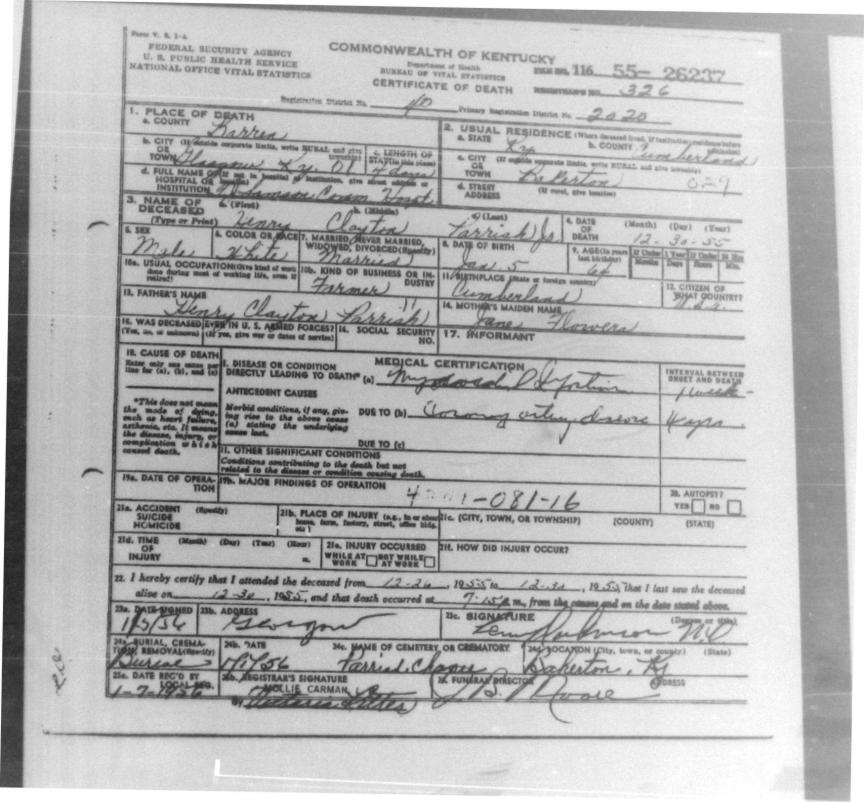 Form V. S. 1-A
FEDERAL SECURITY AGENCY
U. S. PUBLIC HEALTH SERVICE
NATIONAL OFFICE VITAL STATISTICS
COMMONWEALTH OF KENTUCKY
Department of Health
BUREAU OF VITAL STATISTICS
CERTIFICATE OF DEATH
FILE NO. 116 55- 26237
REGISTRAR'S NO. 326
Registration District No. Primary Registration District No. 2020
1. PLACE OF DEATH
a. COUNTY Barren
b. CITY (If outside corporate limits, write RURAL and give township) OR TOWN Glasgow Ky.
c. LENGTH OF STAY (in this place) 4 days
d. FULL NAME OF (If not in hospital or institution, give street address or location) HOSPITAL OR INSTITUTION Comm Hosp.
2. USUAL RESIDENCE (Where deceased lived, if institution: residence before admission)
a. STATE Ky b. COUNTY Cumberland
c. CITY (If outside corporate limits, write RURAL and give township) OR TOWN Bakerton 029
d. STREET ADDRESS (If rural, give location)
3. NAME OF DECEASED (Type or Print) a. (First) Henry b. (Middle) Clayton c. (Last) Parrish Jr.
4. DATE OF DEATH (Month) (Day) (Year) 12-30-55
5. SEX Male
6. COLOR OR RACE White
7. MARRIED, NEVER MARRIED, WIDOWED, DIVORCED (Specify) Married
8. DATE OF BIRTH Jan 5
9. AGE (In years last birthday) 64 If Under 1 Year Months Days If Under 24 Hrs Hours Min.
10a. USUAL OCCUPATION (Give kind of work done during most of working life, even if retired)
10b. KIND OF BUSINESS OR INDUSTRY Farmer
11. BIRTHPLACE (State or foreign country) Cumberland
12. CITIZEN OF WHAT COUNTRY? U.S.A.
13. FATHER'S NAME Henry Clayton Parrish
14. MOTHER'S MAIDEN NAME Jane Flowers
15. WAS DECEASED EVER IN U. S. ARMED FORCES? (Yes, no, or unknown) (If yes, give war or dates of service)
16. SOCIAL SECURITY NO.
17. INFORMANT
18. CAUSE OF DEATH
Enter only one cause per line for (a), (b), and (c)
*This does not mean the mode of dying, such as heart failure, asthenia, etc. It means the disease, injury, or complication which caused death.
MEDICAL CERTIFICATION
I. DISEASE OR CONDITION DIRECTLY LEADING TO DEATH* (a) Myocardial Infarction
INTERVAL BETWEEN ONSET AND DEATH 1 week
ANTECEDENT CAUSES
Morbid conditions, if any, giving rise to the above cause (a) stating the underlying cause last.
DUE TO (b) Coronary artery disease 4 yrs
DUE TO (c)
II. OTHER SIGNIFICANT CONDITIONS
Conditions contributing to the death but not related to the disease or condition causing death.
19a. DATE OF OPERATION
19b. MAJOR FINDINGS OF OPERATION
-081-16
20. AUTOPSY? YES NO
21a. ACCIDENT SUICIDE HOMICIDE (Specify)
21b. PLACE OF INJURY (e.g., in or about home, farm, factory, street, office bldg. etc)
21c. (CITY, TOWN, OR TOWNSHIP) (COUNTY) (STATE)
21d. TIME OF INJURY (Month) (Day) (Year) (Hour) m.
21e. INJURY OCCURRED WHILE AT WORK NOT WHILE AT WORK
21f. HOW DID INJURY OCCUR?
22. I hereby certify that I attended the deceased from 12-26, 1955 to 12-30, 1955, that I last saw the deceased
alive on 12-30, 1955, and that death occurred at 7:15 p m., from the causes and on the date stated above.
23a. DATE SIGNED 1/3/56
23b. ADDRESS Glasgow
23c. SIGNATURE (Degree or title) MD
24a. BURIAL, CREMATION, REMOVAL (Specify) Burial
24b. DATE 1/1/56
24c. NAME OF CEMETERY OR CREMATORY Parrish Chapel
24d. LOCATION (City, town, or county) (State) Bakerton, Ky
25a. DATE REC'D BY LOCAL REG. 1-7-1956
25b. REGISTRAR'S SIGNATURE MOLLIE CARMAN
BY
26. FUNERAL DIRECTOR Moore ADDRESS